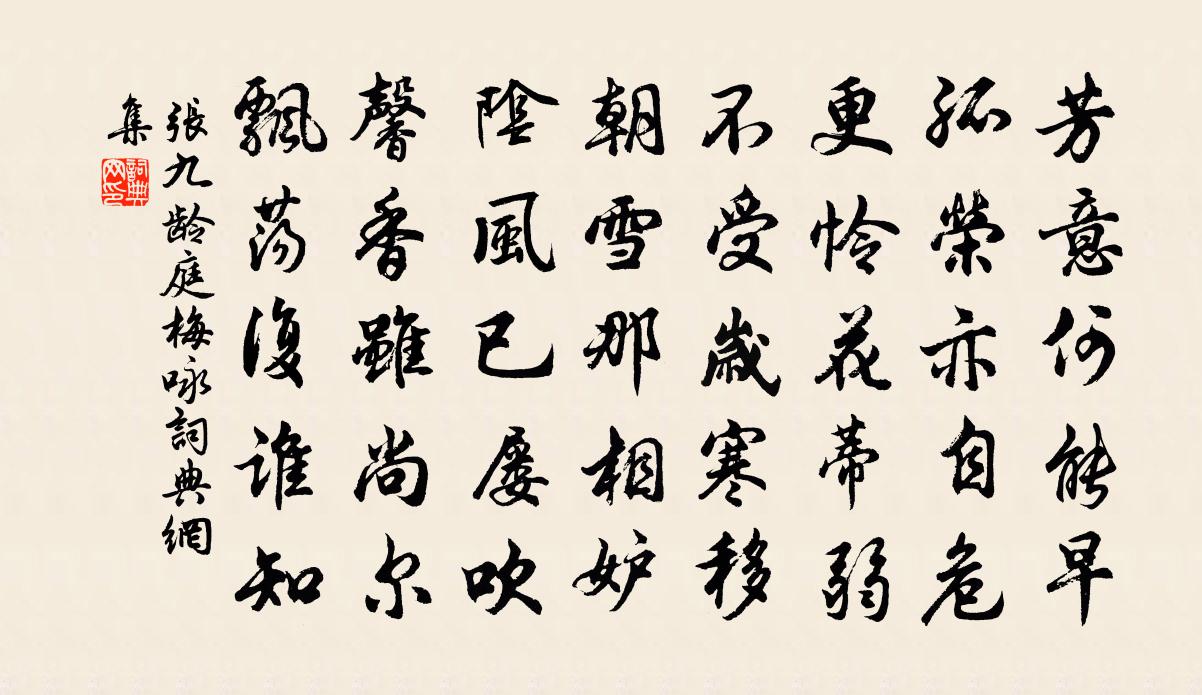 芳意何能早
孤榮亦自危
更怜花蒂弱
不受歲寒移
朝雪那相妒
陰風已屢吹
馨香雖尚尔
飄荡復誰知
張九齡庭梅咏詞典網
集
詞典
网印